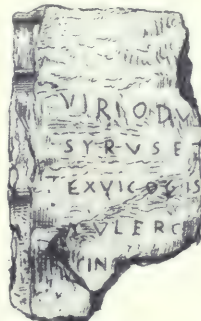 VIRNODV
SYRVSE
TEXVICOGIS
VLERC
IN